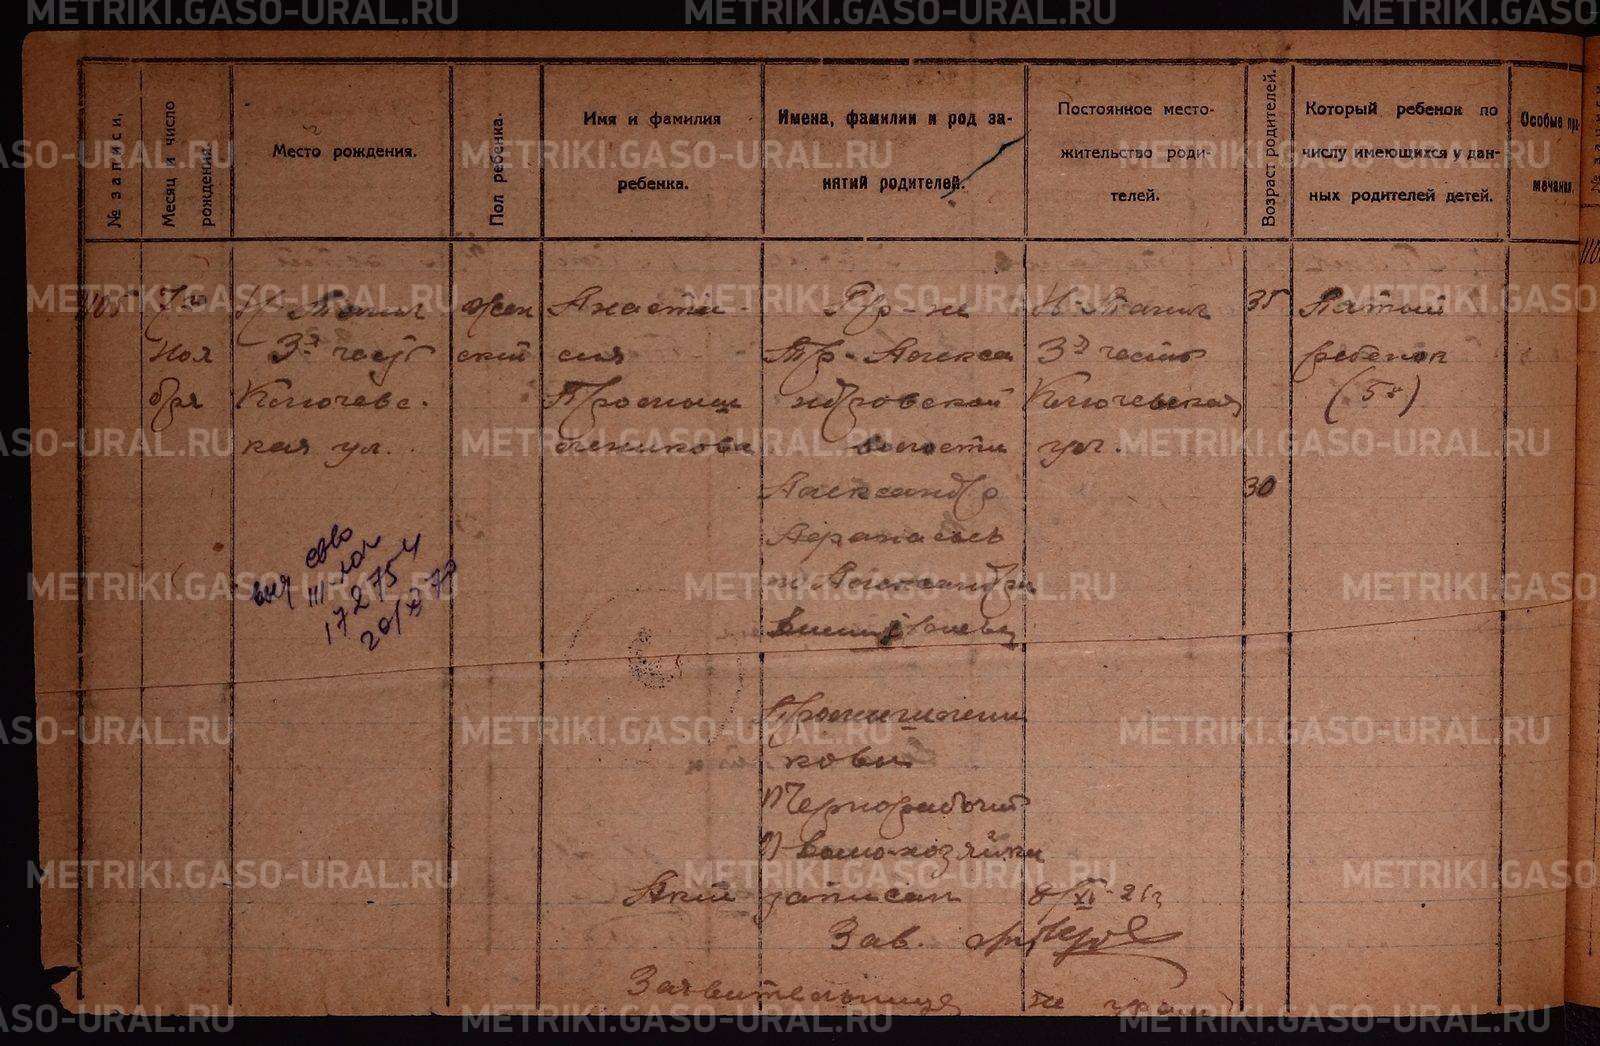 METRIKI.GASO-URAL.RU
№ записи.
Месяц и число рождения.
Место рождения.
Пол ребенка.
Имя и фамилия
ребенка.
Имена, фамилии и род за-
нятий родителей.
Постоянное место-
жительство роди-
телей.
Возраст родителей.
Который ребенок по
числу имеющихся у дан-
ных родителей детей.
Особые при-
мечания.
1105
7го
ноя
бря
Н-Тагил
3я часть
Ключевс-
кая ул.
жен
ский
Анаста-
сия
Промыш
ленникова
Гр-не
Алекса
ндровской
волости
Александр
Афанасьев
и Александра
Промышленни
ковы
1) Чернорабочий
2) домохозяйка
Н-Тагил
3я часть
Ключевская
ул.
35
30
Пятый
ребенок
(5й)
св-во
III-ЮЛ
172754
20/X 70
Акт записан 8/XI-21г
Зав.
Заявительница